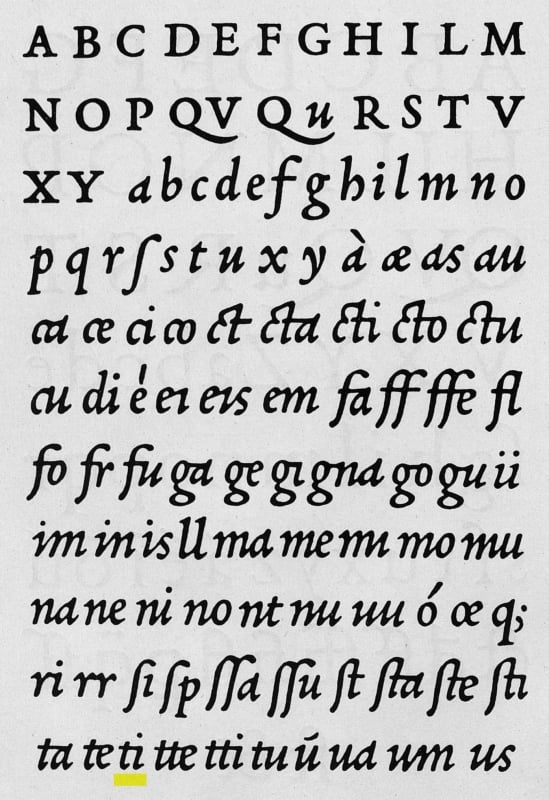 A B C D E F G H I L M
N O P QV Qu R S T V
X Y a b c d e f g h i l m n o
p q r ſ s t u x y à æ as au
ca ce ci co ct cta cti cto ctu
cu di è ei eis em fa ff ffe fl
fo fr fu ga ge gi gna go gu ii
im in is ll ma me mi mo mu
na ne ni no nt nu uu ó œ q;
ri rr ſi ſp ſſa ſſu ſt ſta ſte ſti
ta te ti tte tti tu ũ ua um us